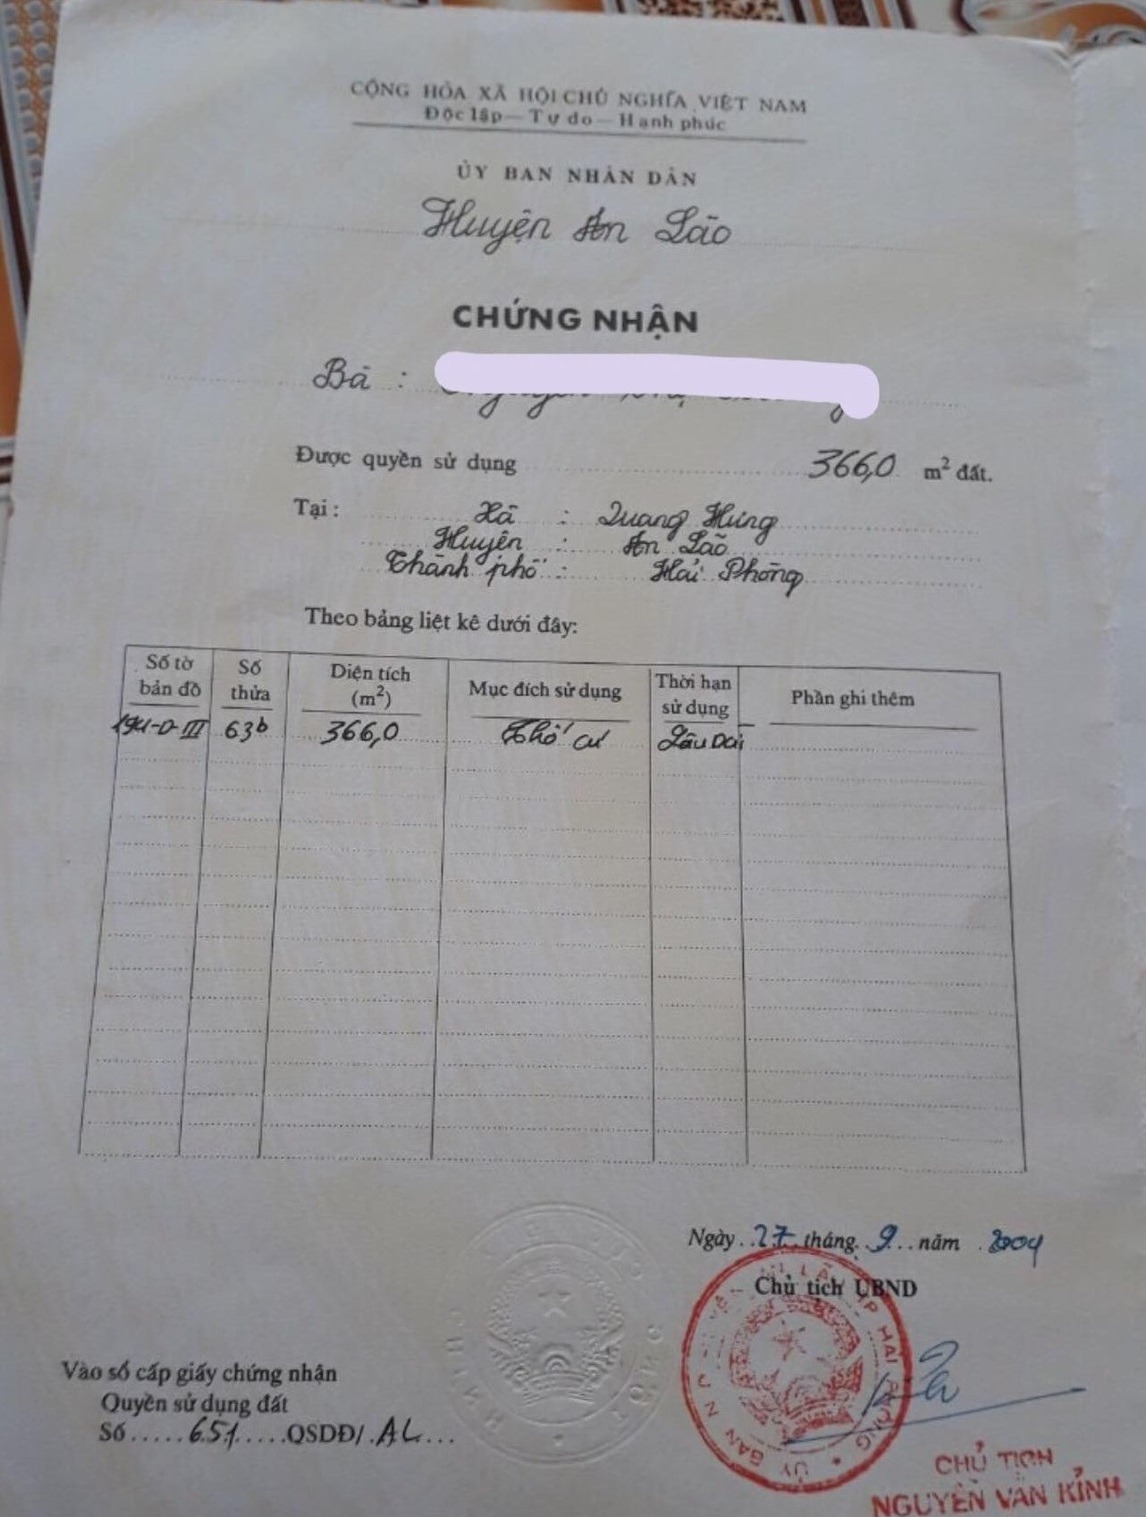 CỘNG HÒA XÃ HỘI CHỦ NGHĨA VIỆT NAM
Độc lập — Tự do — Hạnh phúc
ỦY BAN NHÂN DÂN
Huyện An Lão
CHỨNG NHẬN
Bà :
Được quyền sử dụng 366,0 m² đất.
Tại : Xã : Quang Hưng
Huyện : An Lão
Thành phố : Hải Phòng
Theo bảng liệt kê dưới đây:
Số tờ bản đồ Số thửa Diện tích (m²) Mục đích sử dụng Thời hạn sử dụng Phần ghi thêm
194-D-III 63b 366,0 Thổ cư Lâu Dài
Ngày 27 tháng 9 năm 2004
Chủ tịch UBND
Vào sổ cấp giấy chứng nhận
Quyền sử dụng đất
Số 651 QSDĐ/ AL
CHỦ TỊCH
NGUYỄN VĂN KỈNH